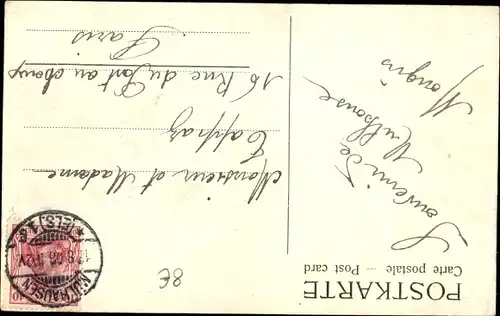 POSTKARTE
Carte postale — Post card
Souvenir de
Mulhouse
Mongin
Monsieur et Madame
Tappaz
16 Rue du Pont au choux
Paris
MÜLHAUSEN
*(ELS.)1*
8€